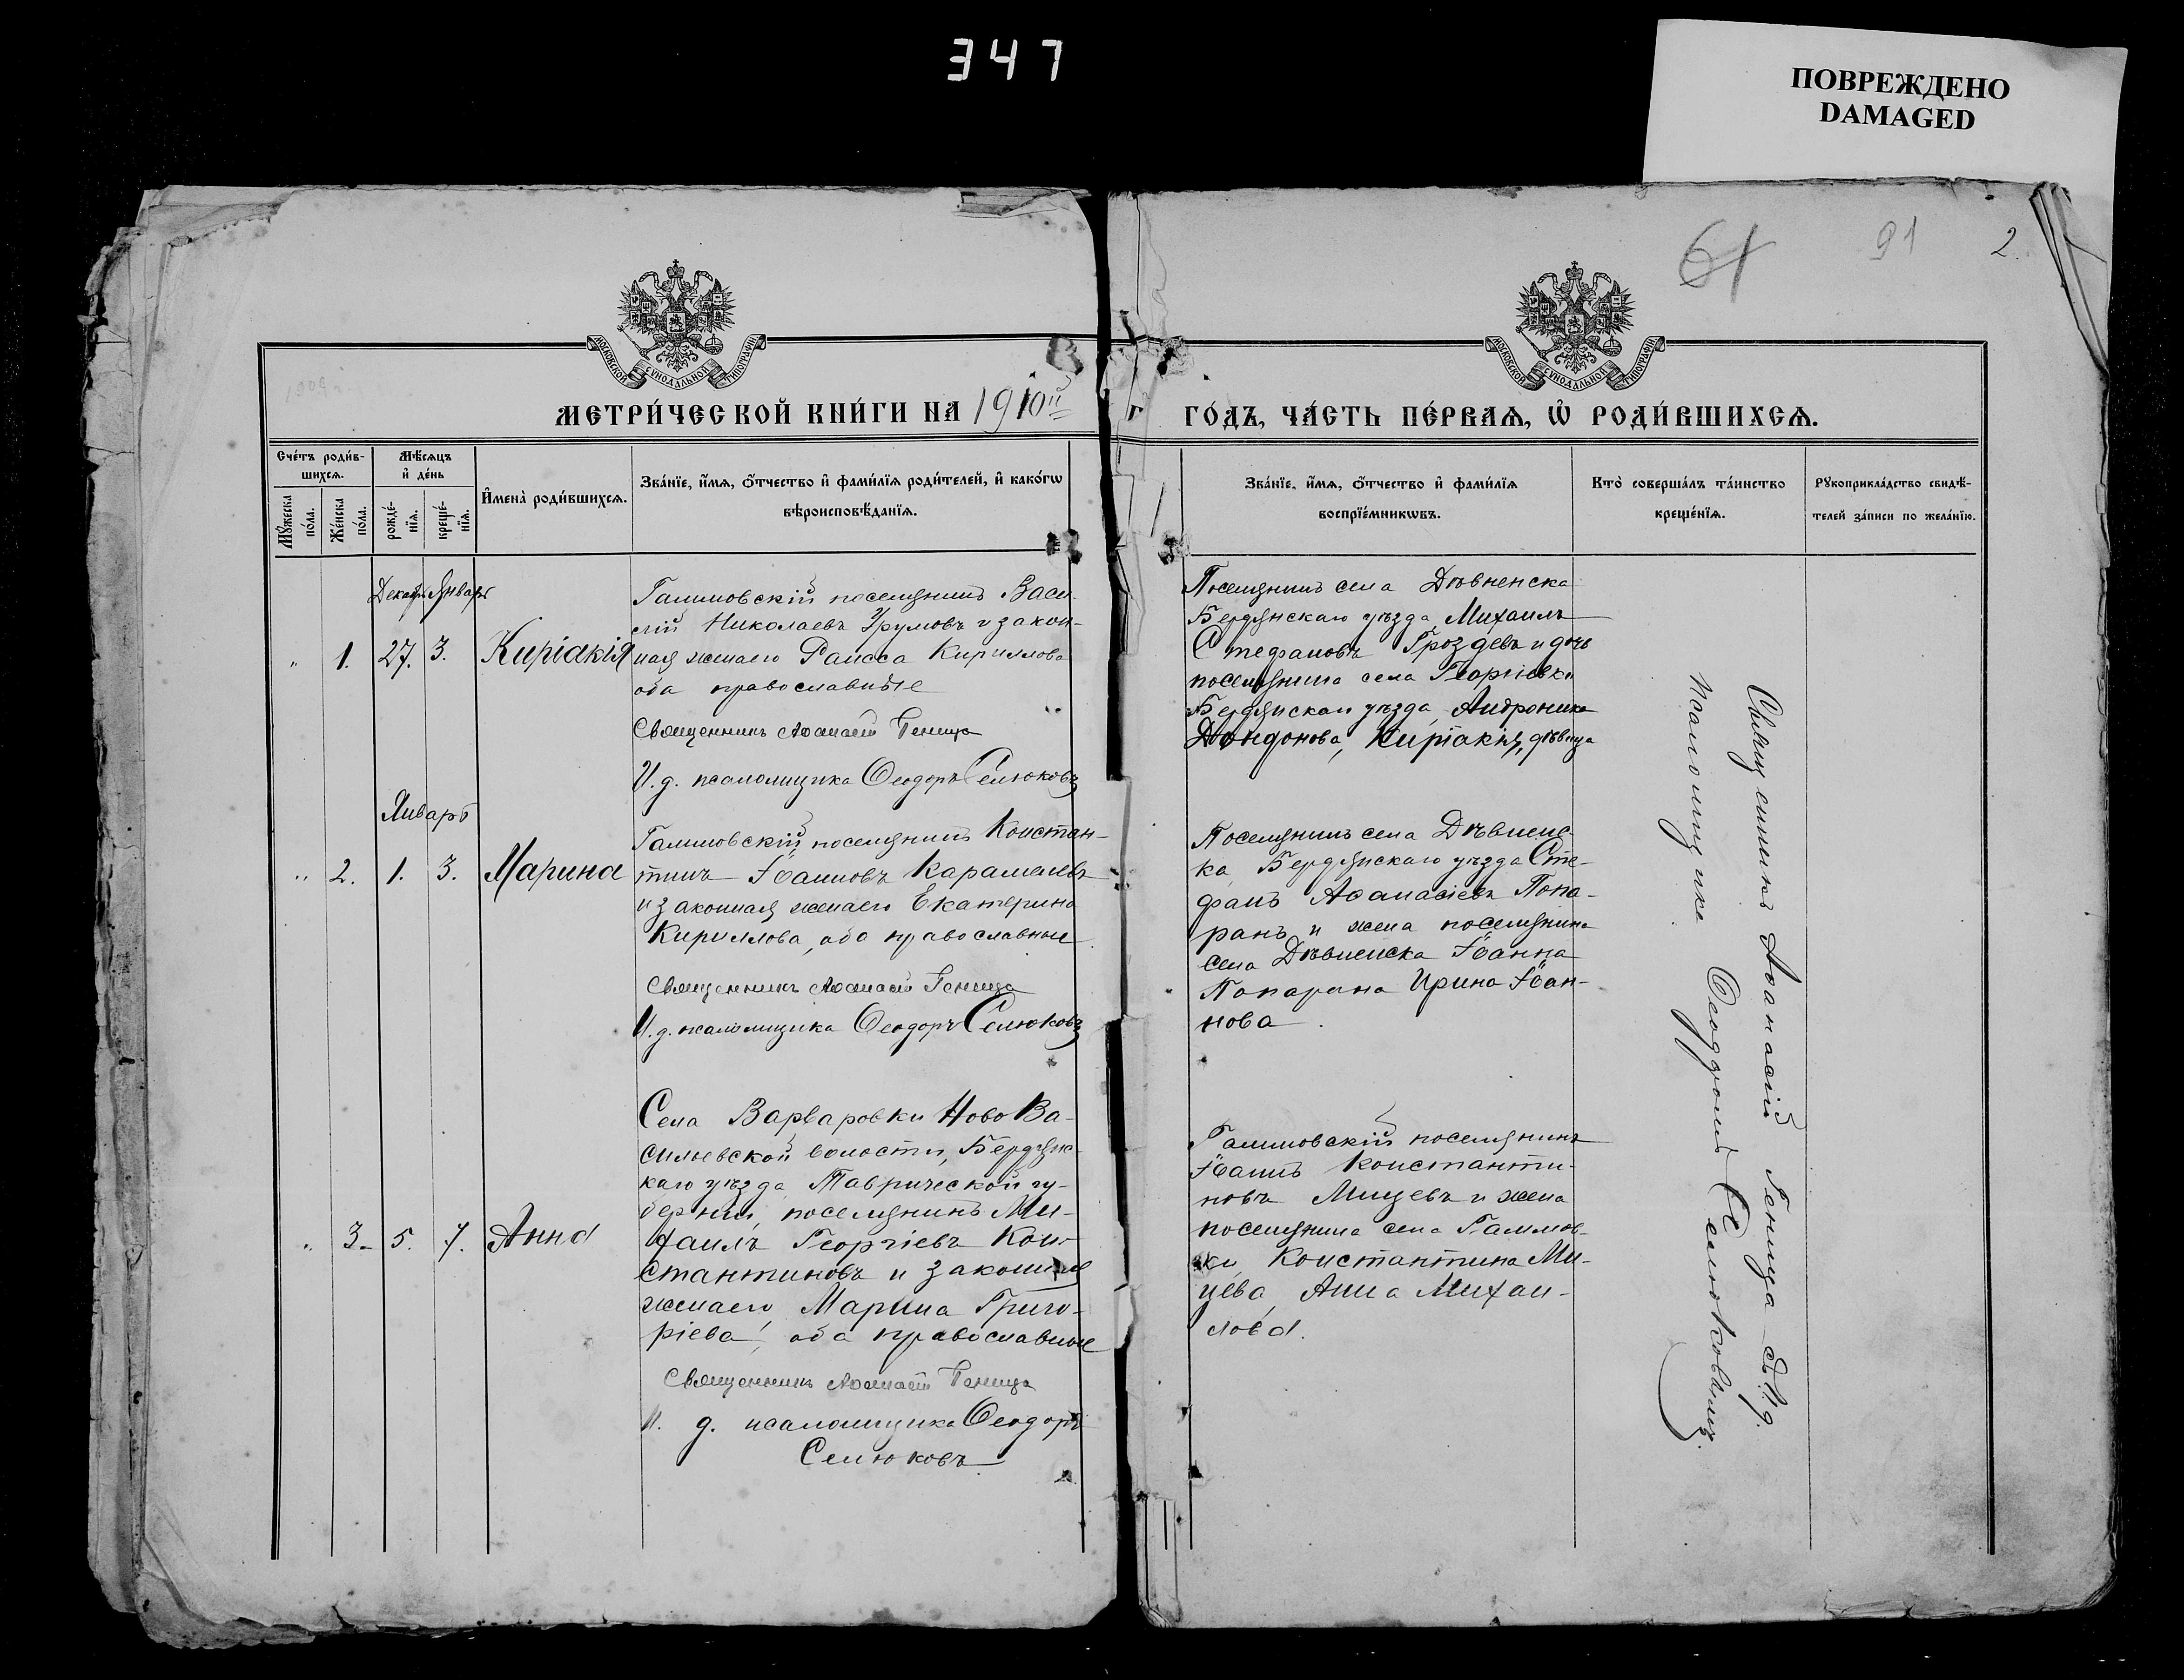 347
ПОВРЕЖДЕНО
DAMAGED
61
91
2.
МОСКОВСКОЙ СѴНОДАЛЬНОЙ ТИПОГРАФІИ
МОСКОВСКОЙ СѴНОДАЛЬНОЙ ТИПОГРАФІИ
МЕТРИ́ЧЕСКОЙ КНИ́ГИ НА 1910й
Г ГО́ДЪ, ЧА́СТЬ ПЕ́РВАЯ, Ѽ РОДИ́ВШИХСЯ.
Сче́тъ роди́в-
шихся.
Мꙋ́жеска по́ла.
Же́нска по́ла.
Мѣ́сяцъ
и҆ де́нь
рожде́-
нїя.
креще́-
нїя.
И҆мена̀ роди́вшихся.
Зва́нїе, и҆́мя, ѻ҆́тчество и҆ фами́лїя роди́телей, и҆ како́гѡ
вѣроисповѣ́данїя.
Зва́нїе, и҆́мя, ѻ҆́тчество и҆ фами́лїя
воспрїе́мникѡвъ.
Кто̀ соверша́лъ та́инство
креще́нїя.
Рꙋкоприкла́дство свидѣ́-
телей за́писи по жела́нїю.
Декабр Январь
" 1. 27. 3. Киріакія
Галимовскій поселянинъ Васи-
лій Николаевъ Урумовъ и закон-
ная жена его Раисса Кириллова
оба православные
Священникъ Аѳанасій Геница
И. д. псаломщика Ѳеодоръ Селюковъ
Поселянинъ села Дѣвненска
Бердянскаго уѣзда, Михаилъ
Стефановъ Гроздевъ и дочь
поселянина села Георгіевки
Бердянскаго уѣзда, Андроника
Дондонова, Киріакія, дѣвица
Январь
" 2. 1. 3. Марина
Галимовскій поселянинъ Констан-
тинъ Іоанновъ Карамалевъ
и законная жена его Екатерина
Кириллова, оба православные
Священникъ Аѳанасій Геница
И. д. псаломщика Ѳеодоръ Селюковъ
Поселянинъ села Дѣвненс-
ка, Бердянскаго уѣзда Сте-
фанъ Аѳанасіевъ Попа-
ранъ и жена поселянина
села Дѣвненска Іоанна
Попарана Ирина Іоан-
нова.
" 3. 5. 7. Анна
Села Варваровки Ново Ва-
сильевской волости, Бердянс-
каго уѣзда, Таврической гу-
берніи, поселянинъ Ми-
хаилъ Георгіевъ Кон-
стантиновъ и законная
жена его, Марина Григо-
ріева, оба православные
Священникъ Аѳанасій Геница
И. д. псаломщика Ѳеодоръ
Селюковъ
Галимовскій поселянинъ
Іоаннъ Константи-
новъ Мицевъ и жена
поселянина села Галимов-
ки, Константина Ми-
цева, Анна Михаи-
лова.
Священникъ Аѳанасій Геница съ И. д.
псаломщика Ѳеодоромъ Селюковымъ.